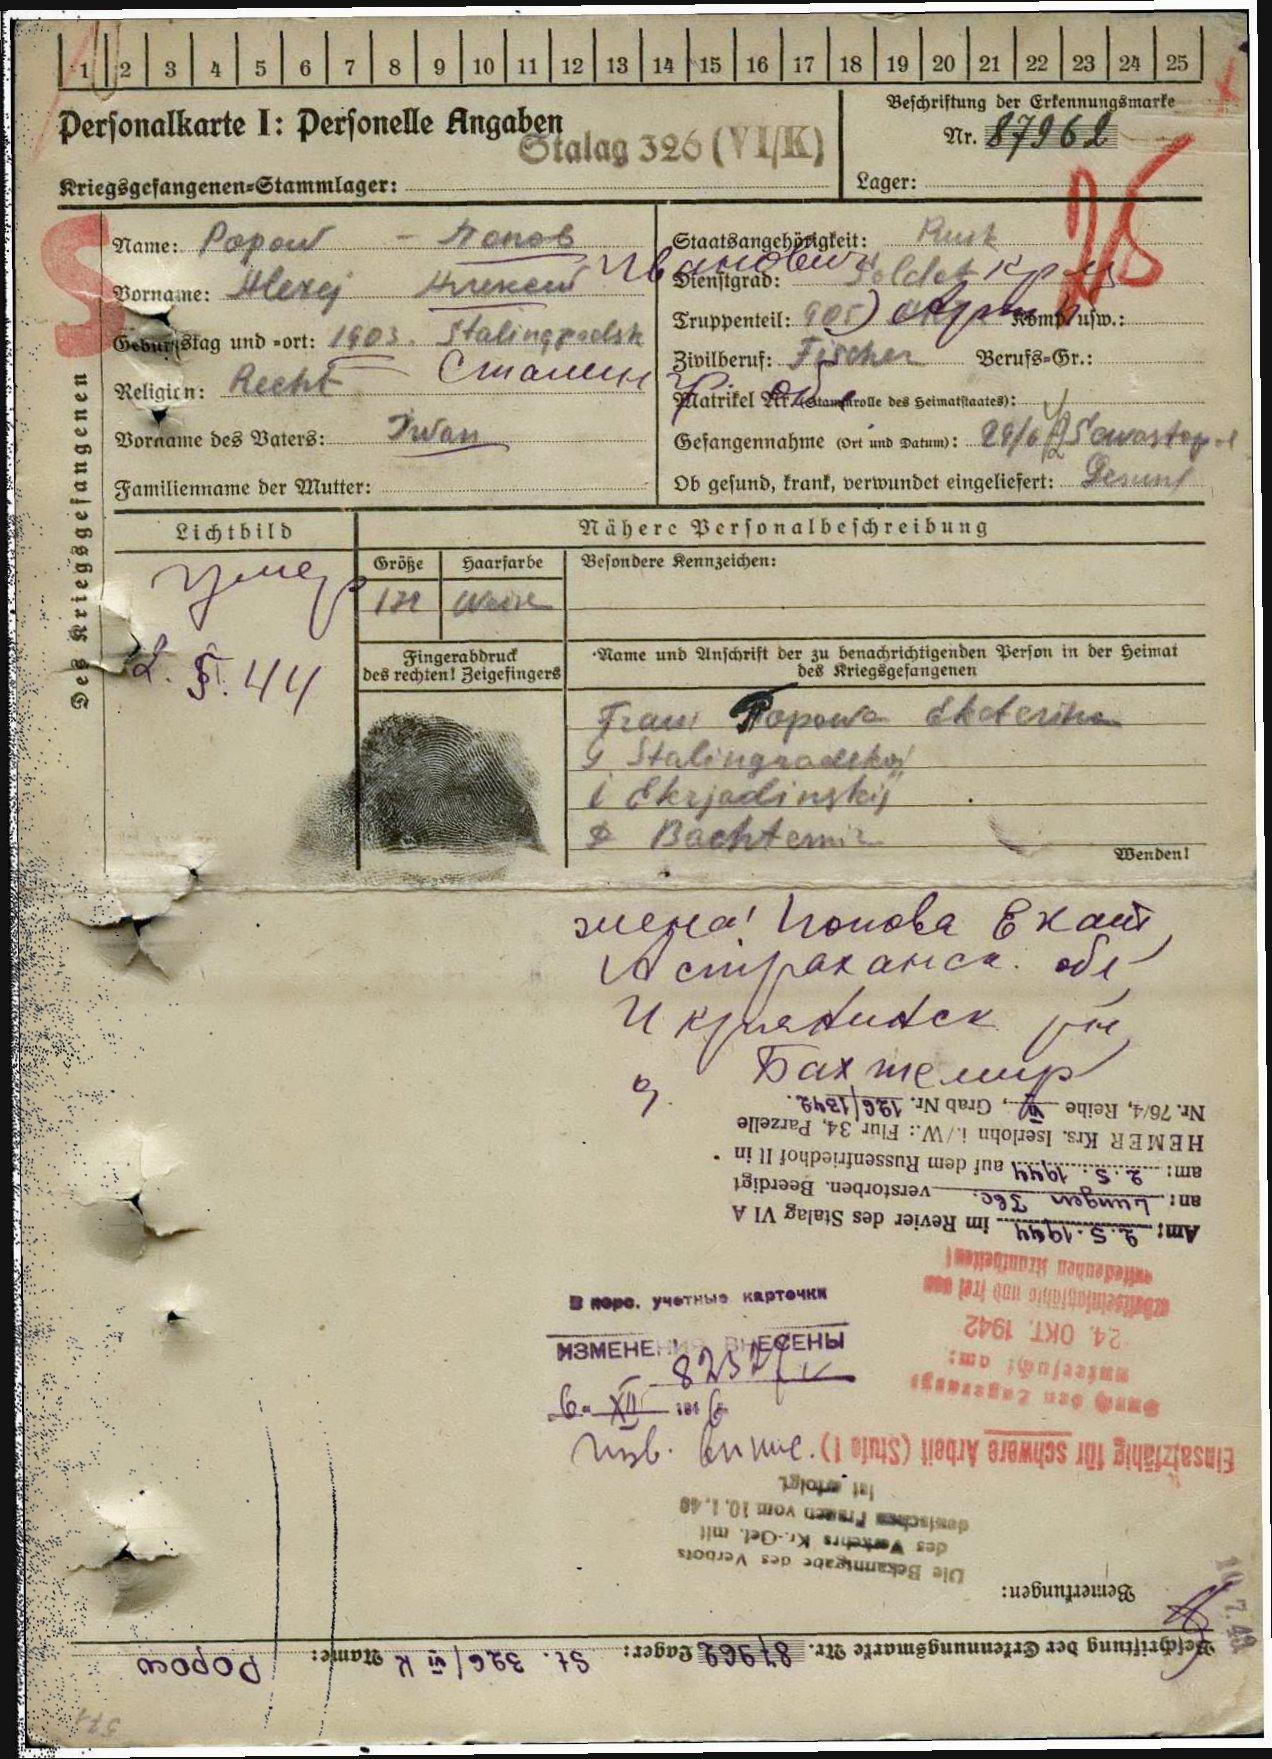 1 2 3 4 5 6 7 8 9 10 11 12 13 14 15 16 17 18 19 20 21 22 23 24 25
Personalkarte I: Personelle Angaben
Stalag 326 (VI/K)
Kriegsgefangenen-Stammlager:
Beschriftung der Erkennungsmarke
Nr. 87962
Lager:
Des Kriegsgefangenen
S
Name: Popow – Попов
Vorname: Alexej Алексей Иванович
Geburtstag und -ort: 1903. Stalingradsk
Religion: Recht Сталин
Vorname des Vaters: Iwan
Familienname der Mutter:
Staatsangehörigkeit: Russ
Dienstgrad: Soldat
Truppenteil: 905 Komp. usw.:
Zivilberuf: Fischer Berufs-Gr.:
Matrikel Nr. (Stammrolle des Heimatstaates):
Gefangennahme (Ort und Datum): Sewastopol
Ob gesund, krank, verwundet eingeliefert: Gesund
Lichtbild
умер
2. 5. 44
Nähere Personalbeschreibung
Größe Haarfarbe Besondere Kennzeichen:
Fingerabdruck
des rechten! Zeigefingers
Name und Anschrift der zu benachrichtigenden Person in der Heimat
des Kriegsgefangenen
Frau Popowa Ekaterina
G Stalingradskoj
Ekrjadinskij
D Bachtemir
Wenden!
жена! Попова Екат
Астраханск. обл
Икрянинск р-н
Бахтемир
Nr. 76/4, Reihe VI, Grab Nr. 126/1342.
HEMER Krs. Iserlohn i./W.: Flur 34, Parzelle
am: 2. 5. 1944 auf dem Russenfriedhof II in
an: Lungen Tbc. verstorben. Beerdigt
Am: 2. 5. 1944 im Revier des Stalag VI A
entsteckenden Krankheiten!
arbeitseinsatzfähig und frei von
24. OKT. 1942
untersucht am:
Durch den Lagerarzt
В перс. учетные карточки
ИЗМЕНЕНИЯ ВНЕСЕНЫ
6. XII
Einsatzfähig für schwere Arbeit (Stufe I)
ist erfolgt.
deutschen Frauen vom 10. 1. 40
des Verkehrs Kr.-Gef. mit
Die Bekanntgabe des Verbots
Bemerkungen:
Beschriftung der Erkennungsmarke Nr. 87962 Lager: St. 326/VI K Name: Popow